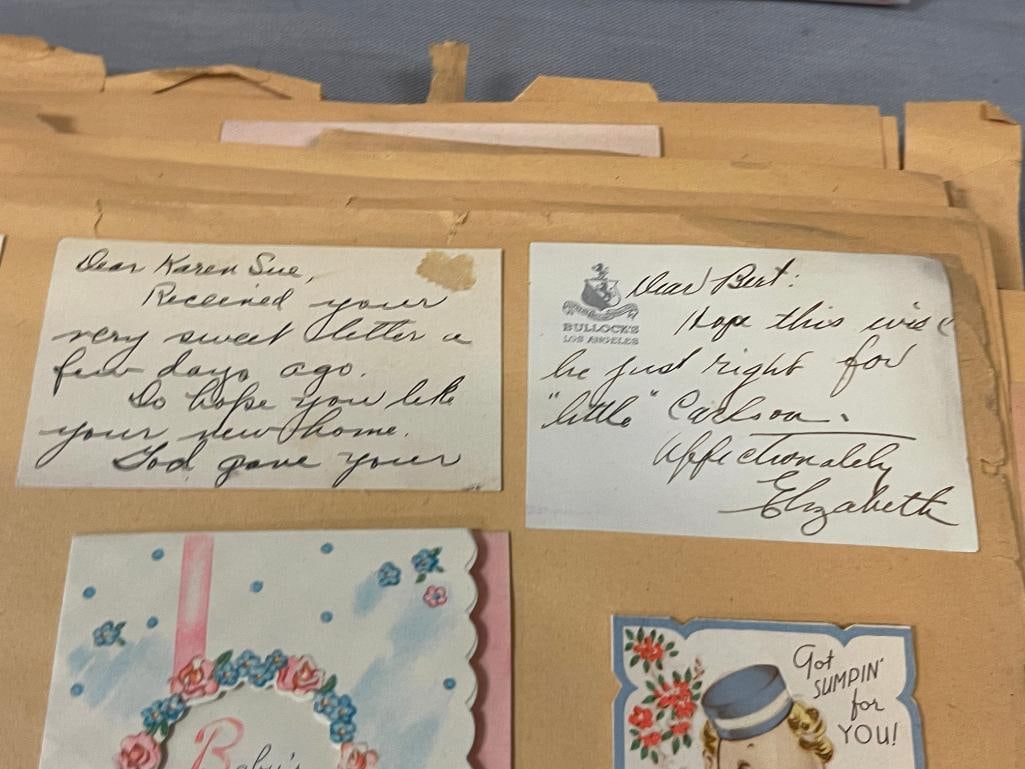 Dear Karen Sue,
Received your
very sweet letter a
few days ago.
Do hope you like
your new home.
God gave your
BULLOCK'S
LOS ANGELES
Dear Bert:
Hope this will
be just right for
"little" Carlson.
Affectionately
Elizabeth
Baby's
Got
SUMPIN'
for
YOU!